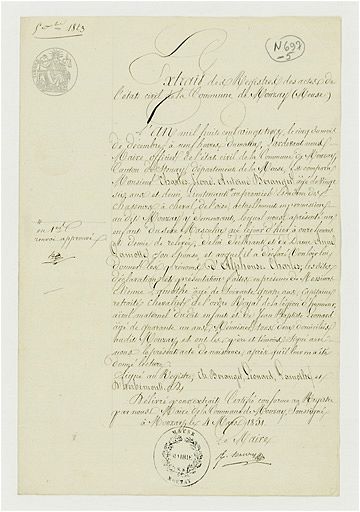 5 Xbre 1823
N 699
-5
Extrait des Registres des actes de
l'état civil de la Commune de Mouzay (Meuse)
L'An mil huit cent vingt trois, le cinq du mois
de décembre, à neuf heures du matin, pardevant nous
Maire officier de l'état civil de la Commune de Mouzay
Canton de Stenay, département de la Meuse, est comparu
Monsieur Charles René Antoine Beranger âgé de vingt
six ans et demi, Lieutenant au premier Escadron des
Chasseurs à cheval de
au dit Mouzay y demeurant, lequel nous a présenté un
enfant du sexe Masculin né le jour d'hier à onze heures
et demie de relevée, de lui déclarant et de Dame Anne
Lamotte son épouse et auquel il a déclaré vouloir
donner les prénoms D'Alphonse Charles, les dites
déclaration et présentation faites en présence de Messieurs
Etienne Lamotte âgé de ans, Capitaine
retraité chevalier de l'ordre Royal de la légion d'honneur,
aïeul maternel du dit enfant et de Jean Baptiste Léonard
âgé de quarante un ans, tous deux domiciliés
au dit Mouzay, et ont les père et témoins signé avec
nous le présent acte de naissance, après qu'il leur en a été
donné lecture.
Signé au Registre, Ch. Beranger, Léonard, Lamotte, et
en 1re
renvoi approuvé
Délivré pour extrait Certifié conforme au Registre
par nous Maire de la Commune de Mouzay, soussigné
à Mouzay le 4 Mars 1831.
Le Maire
MAIRIE
MOUZAY